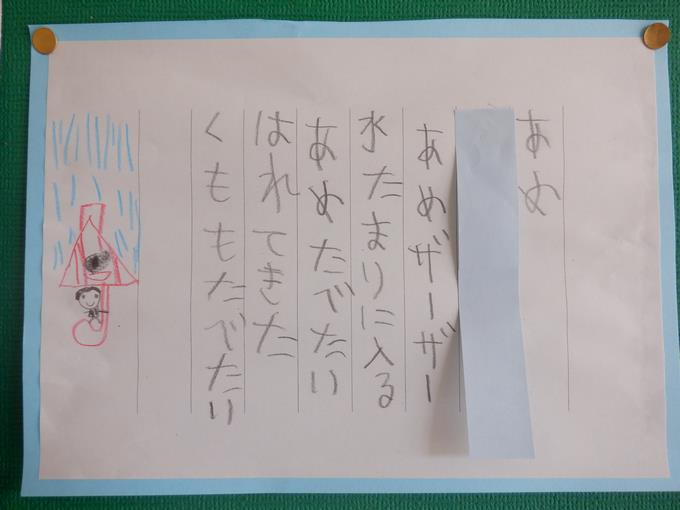 あめ
あめザーザー
水たまりに入る
あめたでたい
はれてきた
くももたでたい